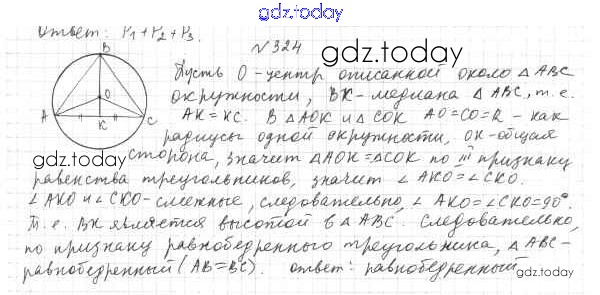 gdz.today
Ответ: P1+P2+P3.
N324
gdz.today
B
O
A
K
C
Пусть O - центр описанной около △ABC
окружности, BK - медиана △ABC, т.е.
AK = KC. В △AOK и △COK AO=CO=R - как
радиусы одной окружности, OK - общая
gdz.today
сторона, значит △AOK=△COK по III признаку
равенства треугольников, значит ∠AKO=∠CKO.
∠AKO и ∠CKO - смежные, следовательно, ∠AKO=∠CKO=90°.
Т.е. BK является высотой в △ABC. Следовательно,
по признаку равнобедренного треугольника, △ABC -
равнобедренный (AB=BC). Ответ: равнобедренный
gdz.today